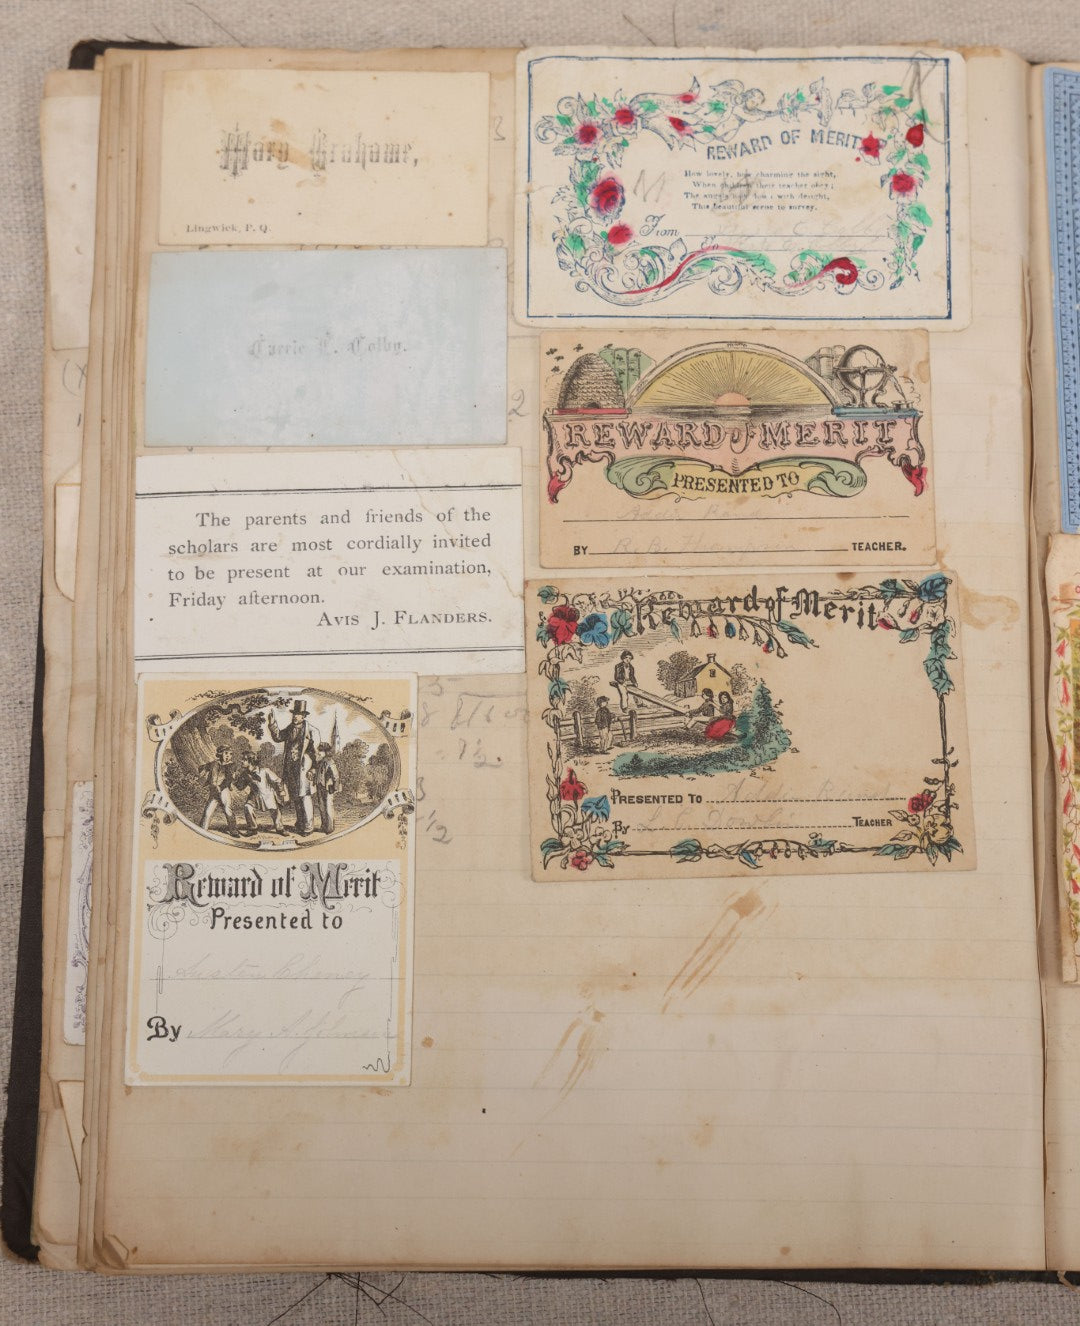 Mary Grahame,
Lingwick, P. Q.
Carrie E. Colby.
The parents and friends of the
scholars are most cordially invited
to be present at our examination,
Friday afternoon.
AVIS J. FLANDERS.
Reward of Merit
Presented to
Austin Cheney
By Mary A. Johnson
REWARD OF MERIT
How lovely, how charming the sight,
When children their teacher obey;
The angels look down with delight,
This beautiful scene to survey.
From
To
REWARD of MERIT
PRESENTED TO
Addie
BY R. B. TEACHER.
Reward of Merit
PRESENTED TO Addie
By TEACHER
3
2
1/2